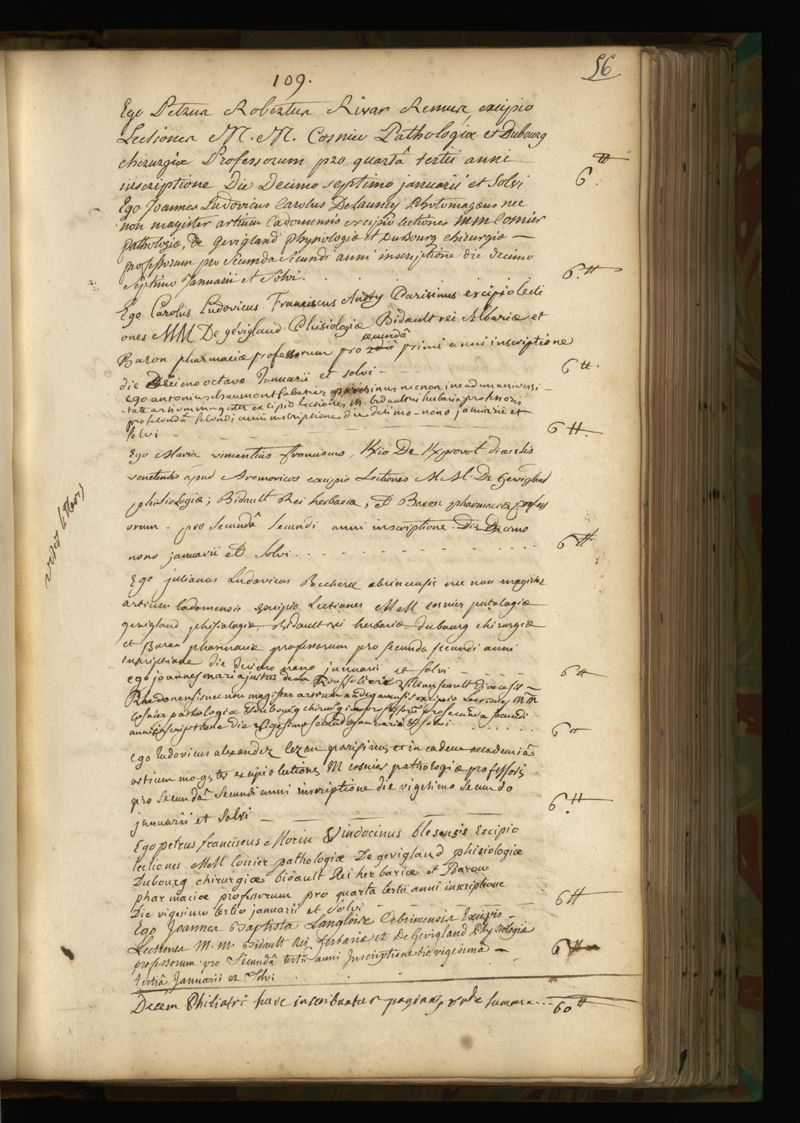 109.
56
Ego Petrus Robertus Rivar Remus, excipio
Lectiones M. M. Cosnier Pathologiæ et Dubourg
chirurgiæ Professorum pro quartâ tertii anni
inscriptione Die Decimo septimo januarii et solvi
6 ₶.
Ego Joannes Ludovicus Carolus Delaunay Rhotomagæus nec
non magister artium Cadomensis excipio lectiones mm Cosnier
pathologiæ, de gevigland physiologiæ et Dubourg chirurgiæ —
professorum pro secunda secundi anni inscriptione die decimo
septimo Januarii et solvi . . . . . .
6 ₶
Ego Carolus Ludovicus Franciscus Andry Parisinus excipio lecti
ones MM De gévigland Phisiologiæ Bidault rei herbariæ et
Baron pharmaciæ professorum pro secundâ primi anni inscriptione
die Decimo octavo Januarii et solvi —
6 ₶.
ego antonius chaumont Sabatier parisinus necnon in eadem universi-
tate artium magister excipio lectiones m. bidault rei herbariæ professoris
pro secundâ secundi anni inscriptione die decimo-nono januarii et
solvi —
6 ₶.
Ego Maria vincentius franciscus, De diœcesis
venetensis apud Aremoricos excipio Lectiones M M. De Gevigland
phisiologiæ; Bidault Rei herbariæ, et Baron pharmaciæ profess
orum. pro secundâ secundi anni inscriptione. Die Decimo
nono januarii et solvi . . . . . .
6 ₶
Ego julianus Ludovicus abrincensis nec non magister
artium Cadomensis excipio Lectiones M M cosnier patologiæ
gevigland phisiologiæ Bidault rei herbariæ dubourg chirurgiæ
et Baron pharmaciæ professorum pro secunda secundi anni
inscriptione die decimo nono januarii et solvi
6 ₶
ego joannes maria justus
Rhedonensis nec non magister artium andegavensis excipio Lectiones MM
Cosnier pathologiæ et dubourg chirurgiæ professorum pro secunda secundi
anni inscriptione die vigesimo secundo januarii et solvi . . . . .
6 ₶
ego ludovicus alexander lezan parisinus et in eadem academiâ
artium magister excipio lectiones M cosnier pathologiæ professoris
pro secundâ secundi anni inscriptione die vigesimo secundo
januarii et solvi —
6 ₶
Ego petrus franciscus Morin Vindocinus blesensis Excipio
lectiones MM Cosnier pathologiæ De gevigland phisiologiæ
Dubourg chirurgiæ bidault Rei herbariæ et Baron
pharmaciæ professorum pro quarta tertii anni inscriptione
Die vigesimo tertio januarii et solvi —
6 ₶
Ego Joannes Baptista Langlois Excipio
Lectiones M. M. Bidault Rei herbariæ et De Gevigland Physiologiæ
professorum pro secundâ tertii anni Inscriptione die vigesimâ —
tertiâ Januarii et solvi . . .
6 ₶
Decem Philiatri hâc inscribuntur paginâ, unde summa . . .
60 ₶